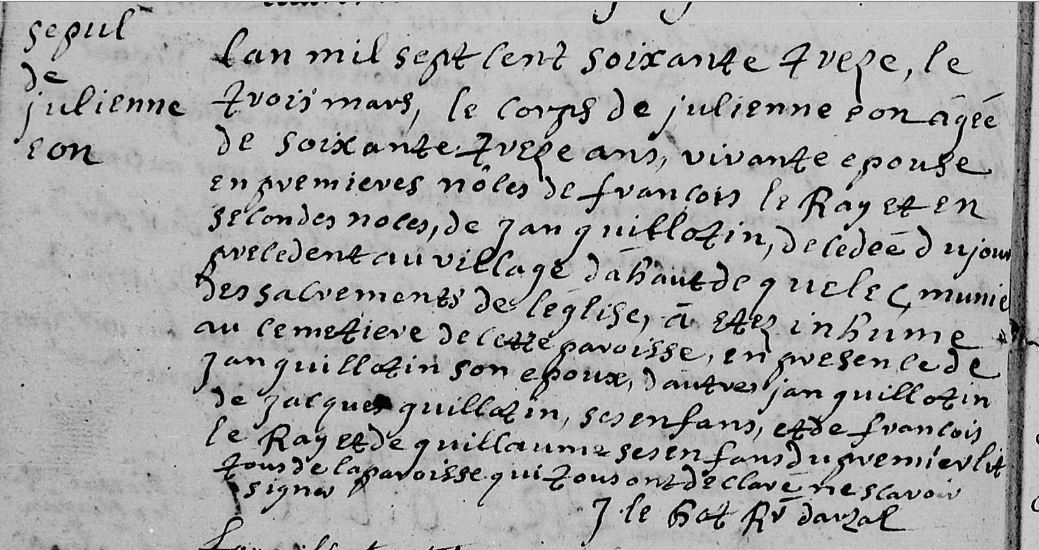 sepul
de
julienne
eon
lan mil sept cent soixante treze, le
trois mars, le corps de julienne eon âgéé
de soixante treze ans, vivante epouse
en premieres nôces de francois le Ray et en
secondes noces, de jan guillotin, decedéé du jour
precedent au village dahaut de
munie
des sacrements de léglise, à etez inhume
au cemetiere de cette paroisse, en presence de
jan guillotin son epoux, dautres jan guillotin
de jacques guillotin, ses enfans, et de francois
le Ray et de guillaume ses enfans du premier lit
tous de la paroisse qui tous ont declaré ne scavoir
signer
J le hat Rr darzal